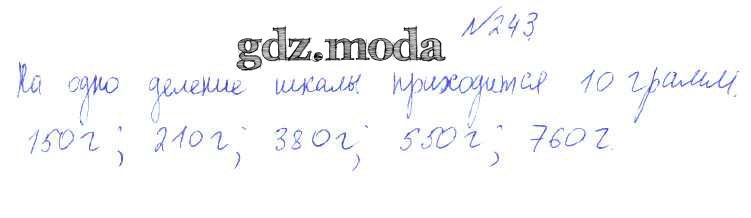 №243
gdz.moda
На одно деление шкалы приходится 10 грамм.
150г; 210г; 380г; 550г; 760г.